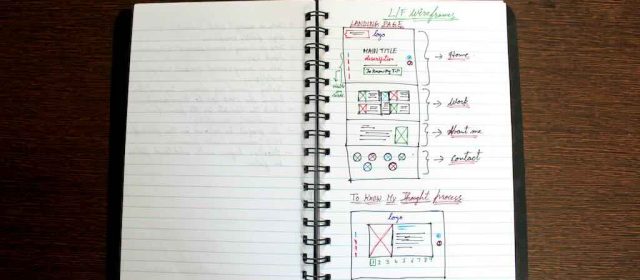 L/F Wireframes
LANDING PAGE
logo
MAIN TITLE
description
Home
Work
About me
Contact
TO KNOW MY Thought process
logo
1 2 3 4 5 6 7 8 9